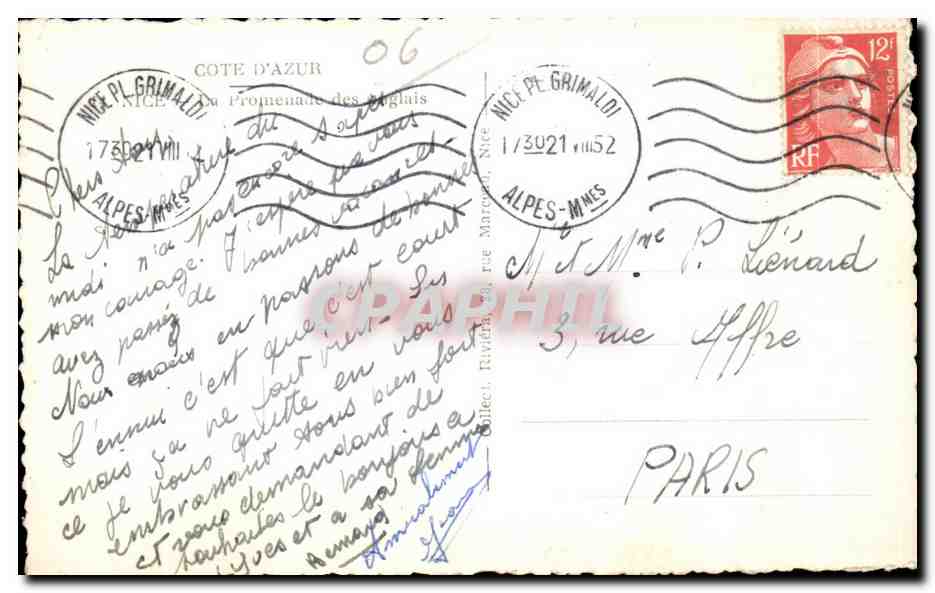 06
COTE D'AZUR
NICE La Promenade des Anglais
NICE PL. GRIMALDI
1730 21 VIII
ALPES-MMES
NICE PL. GRIMALDI
1730 21 VIII 52
ALPES-MMES
12F
POSTES
RF
Chers
La température du
midi n'a pas encore sapé
mon courage. J'espère que vous
avez passé de bonnes vacances
Nous en passons de bonnes
L'ennui c'est que c'est court
mais ça ne fait rien
ce je vous quitte en vous
embrassant tous bien fort
et vous demandant de
souhaiter le bonjour a
Yves et a sa femme
Bernard
Amicalement
Collect. Riviéra, 28, rue Marceau, Nice
Mr et Mme P. Liénard
3, rue Affre
PARIS
CPAPHIL